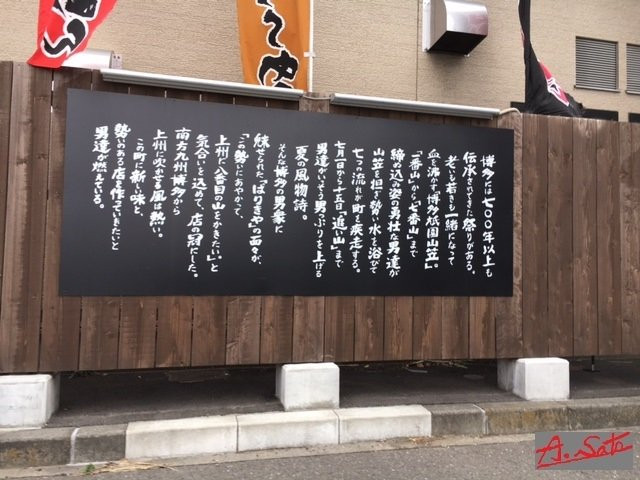 博多には七〇〇年以上も
伝承されてきた祭りがある。
老いも若きも一緒になって
血を沸かす博多祇園山笠。
「一番山」から「七番山」まで
締め込み姿の勇壮な男達が
山笠を担ぎ勢い水を浴びて
七つの流れが町を疾走する。
七月一日から十五日「追い山」まで
男達がいっそう男っぷりを上げる
夏の風物詩。
そんな博多の男衆に
魅せられた「ばりきや」の面々が、
「この勢いにあやかって、
上州に八番目の山をかきたい」と
気合いを込めて、店の冠にした。
南方九州博多から
上州に吹かせる風は熱い。
この町に新しい味と、
勢いのある店を作っていきたいと
男達が燃えている。
A. Sato